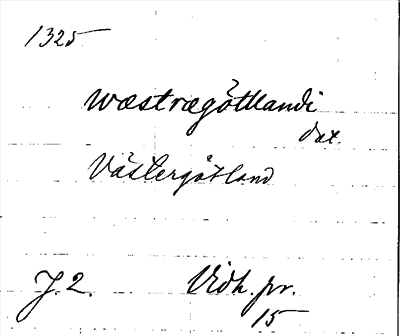 1325
wæstrægötlandi
dat.
Västergötland
J. 2. Vidh. pr.
15